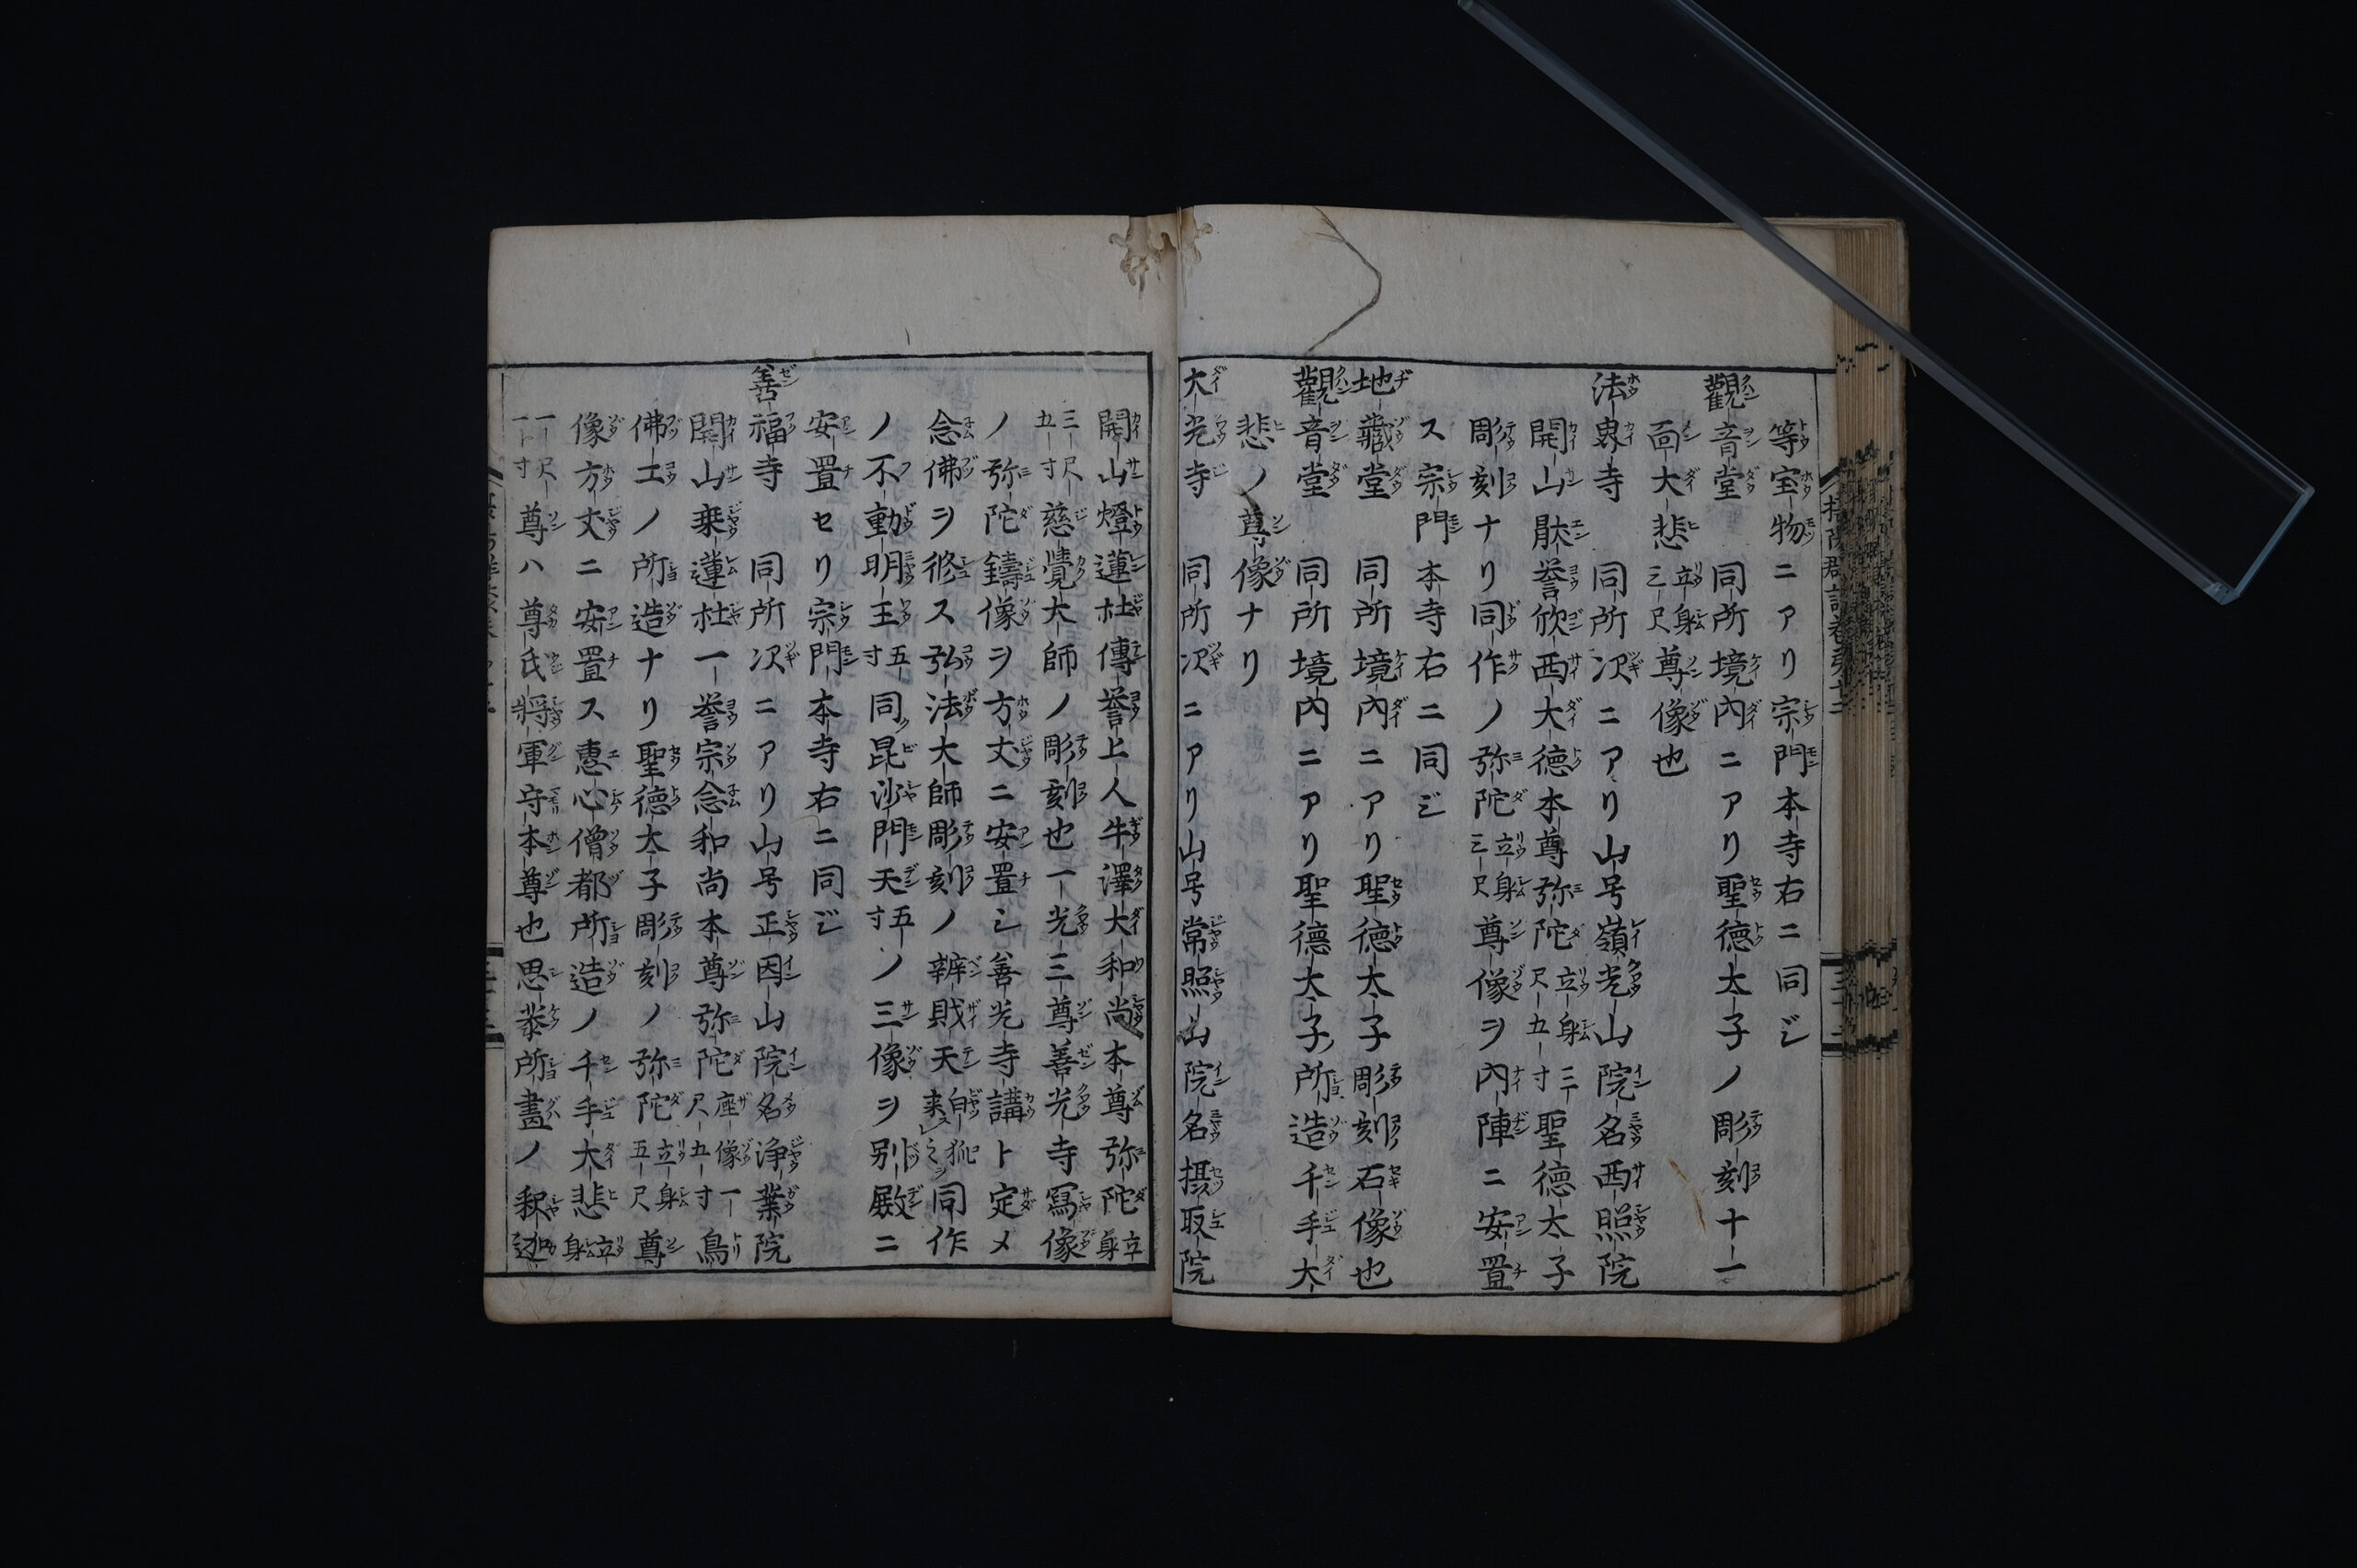 等宝物ニアリ宗門本寺右ニ同ジ
觀音堂 同所境內ニアリ聖德太子ノ彫刻十一
面大悲立身三尺尊像也
法界寺 同所次ニアリ山号嶺光山院名西照院
開山誉欣西大德本尊弥陀立身三尺五寸聖德太子
彫刻ナリ同作ノ弥陀立身三尺尊像ヲ內陣ニ安置
ス宗門本寺右ニ同ジ
地藏堂 同所境內ニアリ聖德太子彫刻石像也
觀音堂 同所境內ニアリ聖德太子所造千手大
悲ノ尊像ナリ
大光寺 同所次ニアリ山号常照山院名摂取院
開山燈蓮社傳誉上人牛澤大和尚本尊弥陀立身
三尺五寸慈覺大師ノ彫刻也一光三尊善光寺寫像
ノ弥陀鑄像ヲ方丈ニ安置シ善光寺講ト定メ
念佛ヲ修ス弘法大師彫刻ノ辨財天白狐来之同作
ノ不動明王五寸同ク毘沙門天五寸ノ三像ヲ别殿ニ
安置セリ宗門本寺右ニ同ジ
善福寺 同所次ニアリ山号正因山院名浄業院
開山乗蓮社一誉宗念和尚本尊弥陀座像一尺五寸鳥
佛工ノ所造ナリ聖德太子彫刻ノ弥陀立身五尺尊
像方丈ニ安置ス惠心僧都所造ノ千手大悲立身
一尺一寸尊ハ尊氏將軍守本尊也思恭所畫ノ釈迦